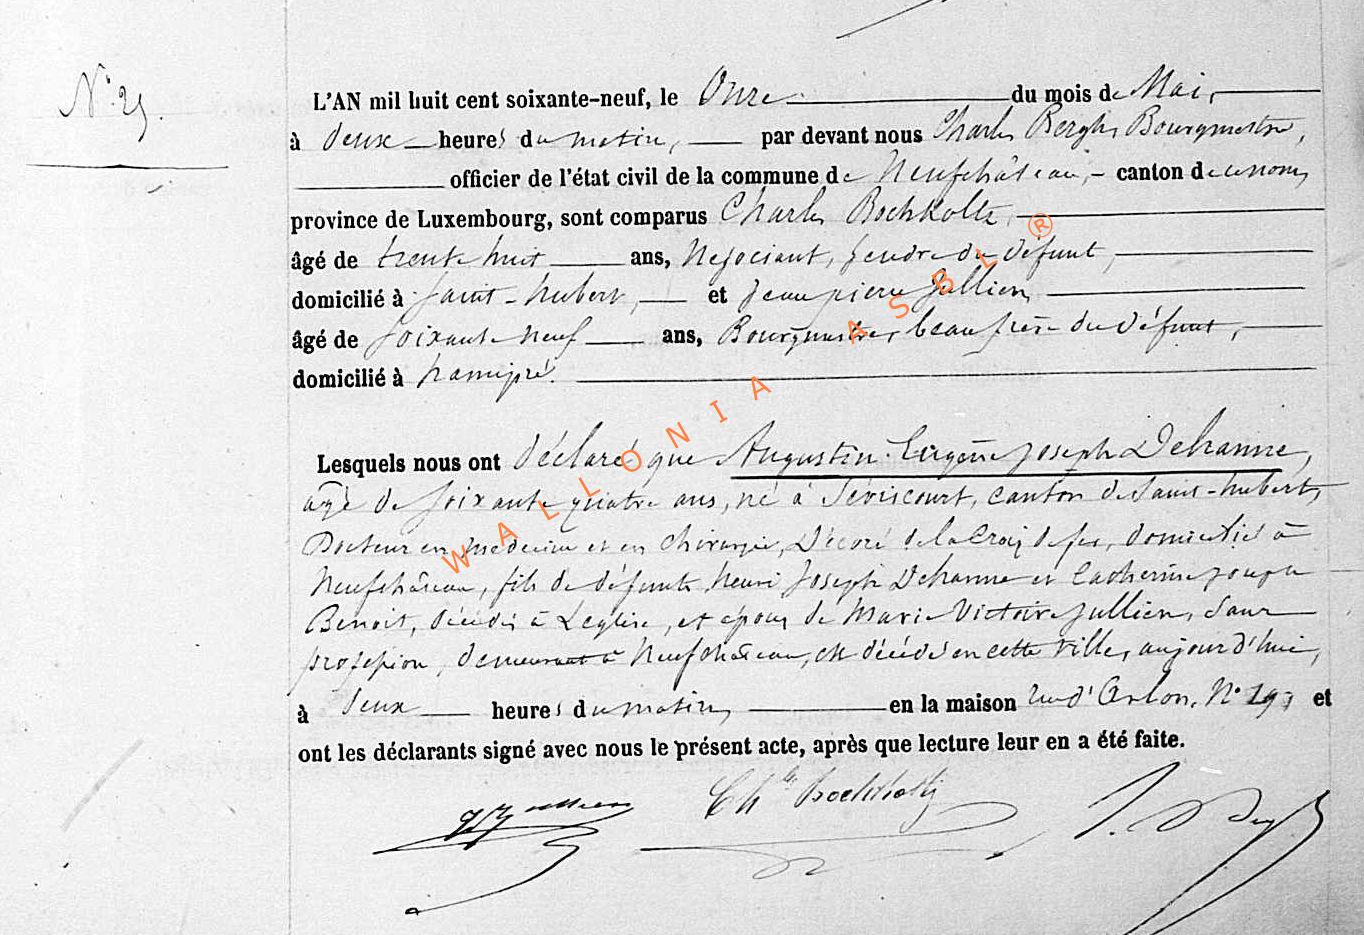 N° 25.
L'AN mil huit cent soixante-neuf, le Onze du mois de Mai,
à deux heures du matin, par devant nous Charles Bergh, Bourgmestre,
officier de l'état civil de la commune de Neufchâteau, canton de ce nom,
province de Luxembourg, sont comparus Charles Bochkoltz,
âgé de trente huit ans, Négociant, gendre du défunt,
domicilié à Saint-hubert, et Jean pierre Jullien,
âgé de soixante neuf ans, Bourgmestre, beau frère du défunt,
domicilié à hamipré.
Lesquels nous ont déclaré que Augustin Eugène Joseph Dehanne,
agé de soixante quatre ans, né à Séviscourt, canton de Saint-hubert,
Docteur en médecine et en chirurgie, Décoré de la Croix de fer, domicilié à
Neufchâteau, fils de défunts henri Joseph Dehanne et Catherine Joseph
Benoit, décédés à Léglise, et époux de Marie Victoire Jullien, sans
profession, demeurant à Neufchâteau, est décédé en cette ville, aujourd'hui,
à deux heures du matin, en la maison rue d'Arlon, N° 199 et
ont les déclarants signé avec nous le présent acte, après que lecture leur en a été faite.
Jullien Ch les Bochkoltz
WALLONIA ASBL ®